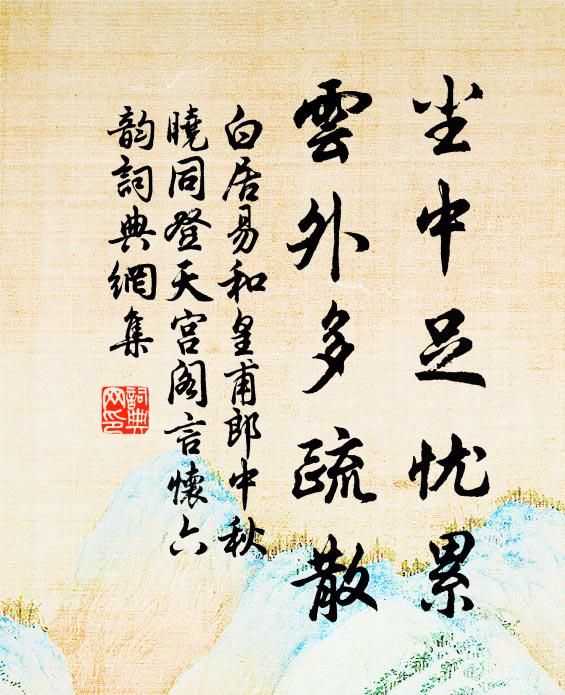 尘中足忧累
雲外多疏散
白居易和皇甫郎中秋
曉同登天宫阁言懷六
韵詞典網集
詞典网印